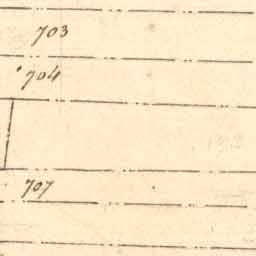 703
704
707